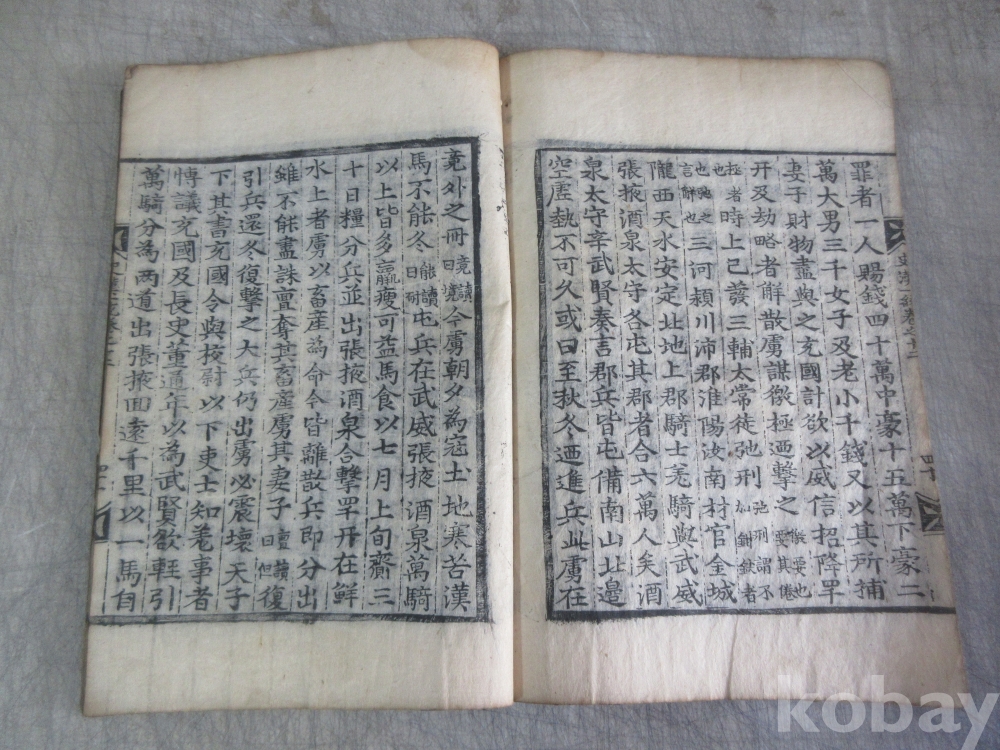 罪者一人賜錢四十萬中豪十五萬下豪二
萬大男三千女子及老小千錢又以其所捕
妻子財物盡與之充國計欲以威信招降罕
开及劫略者解散虜謀徼極迺擊之徼要也要其倦
極者也時上已發三輔太常徒弛刑弛刑謂不加鉗釱者
也弛之言解也三河潁川沛郡淮陽汝南材官金城
隴西天水安定北地上郡騎士羌騎與武威
張掖酒泉太守各屯其郡者合六萬人矣酒
泉太守辛武賢奏言郡兵皆屯備南山北邊
空虛埶不可久或曰至秋冬迺進兵此虜在
竟外之冊竟讀曰境今虜朝夕為寇土地寒苦漢
馬不能冬能讀曰耐屯兵在武威張掖酒泉萬騎
以上皆多羸瘦可益馬食以七月上旬齎三
十日糧分兵並出張掖酒泉合擊罕开在鮮
水上者虜以畜産為命今皆離散兵即分出
雖不能盡誅亶奪其畜産虜其妻子亶讀曰但復
引兵還冬復擊之大兵仍出虜必震壞天子
下其書充國令與校尉以下吏士知羌事者
愽議充國及長史董通年以為武賢欲輕引
萬騎分為兩道出張掖囬遠千里以一馬自
kobay